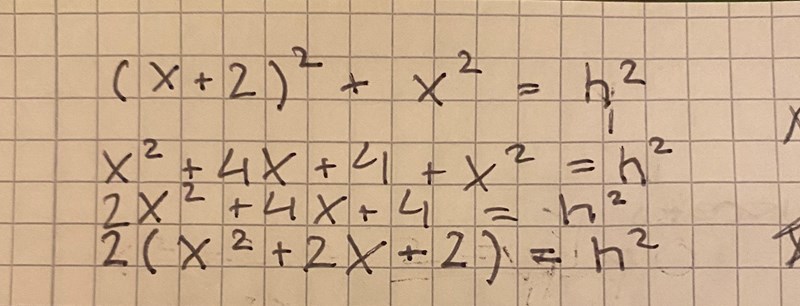 (x+2)² + x² = h²
x² + 4x + 4 + x² = h²
2x² + 4x + 4 = h²
2(x² + 2x + 2) = h²